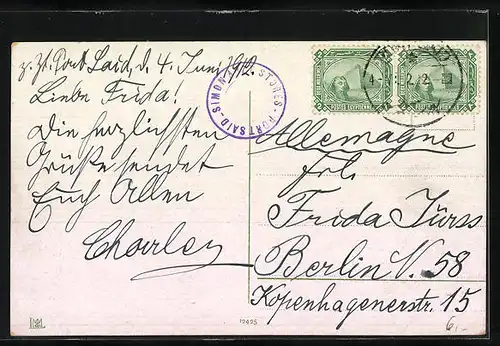 z. Zt. Port Said, d. 4. Juni 1912.
Liebe Frida!
Die herzlichsten
Grüße sendet
Euch Allen
Charley
SIMON STORES · PORT SAID
POSTES EGYPTIENNES
Allemagne
Frl.
Frida Jürss
Berlin N. 58
Kopenhagenerstr. 15
12425
6,-